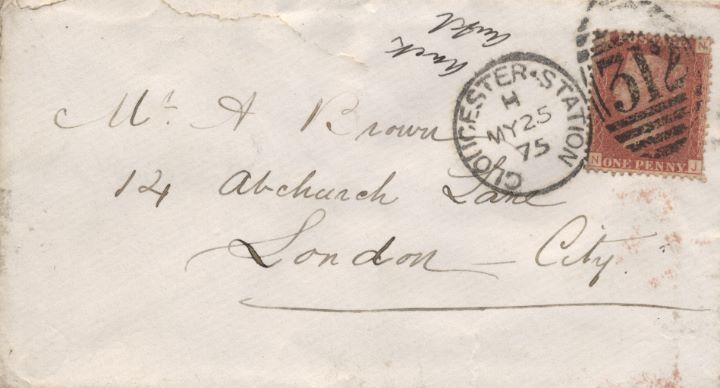 GLOUCESTER·STATION
H
MY 25
75
312
N J
ONE PENNY
Mr. A Brown
124 Abchurch Lane
London - City.